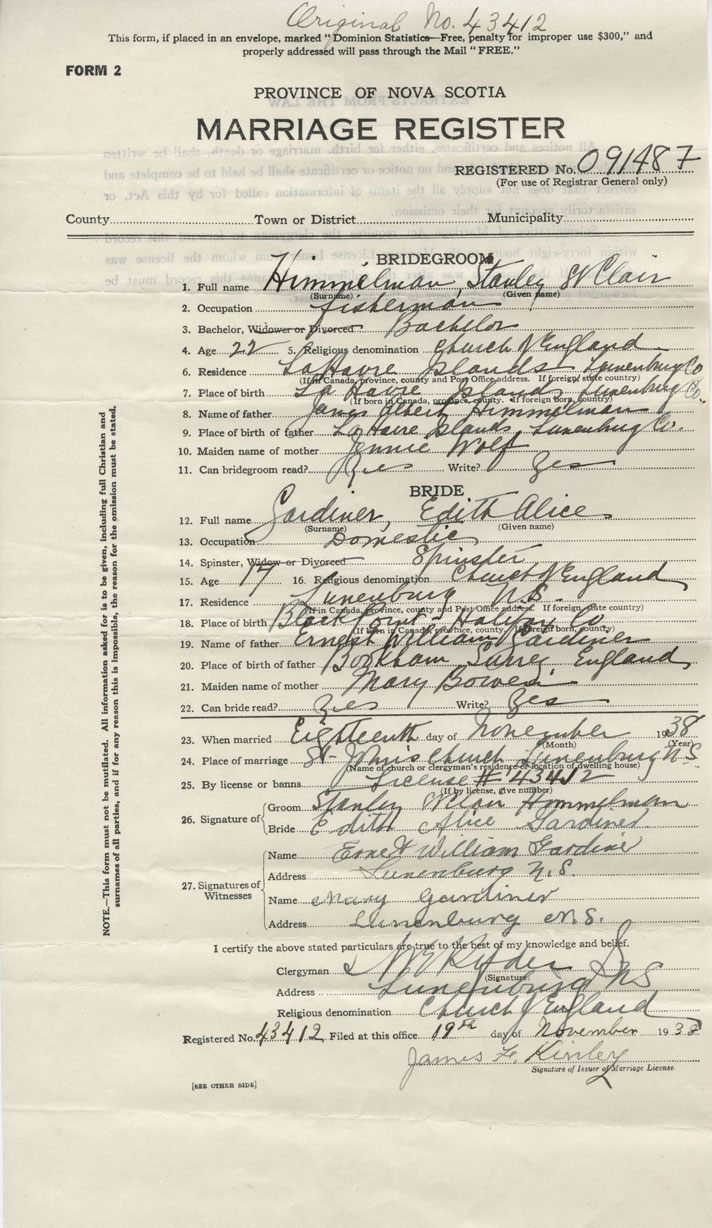 Original No. 43412
This form, if placed in an envelope, marked "Dominion Statistics—Free, penalty for improper use $300," and
properly addressed will pass through the Mail "FREE."
FORM 2
PROVINCE OF NOVA SCOTIA
MARRIAGE REGISTER
REGISTERED No. 091487
(For use of Registrar General only)
County Town or District Municipality
BRIDEGROOM
1. Full name Himmelman, Stanley St Clair
(Surname) (Given name)
2. Occupation fisherman
3. Bachelor, Widower or Divorced Bachelor
4. Age 22 5. Religious denomination Church of England
6. Residence LaHave Islands Lunenburg Co
(If in Canada, province, county and Post Office address. If foreign, state country)
7. Place of birth La Have Islands Lunenburg Co.
(If born in Canada, province, county. If foreign born, country)
8. Name of father James Albert Himmelman
9. Place of birth of father La Have Islands, Lunenburg Co.
10. Maiden name of mother Jennie Wolf
11. Can bridegroom read? Yes Write? Yes
BRIDE
12. Full name Gardiner, Edith Alice
(Surname) (Given name)
13. Occupation Domestic
14. Spinster, Widow or Divorced Spinster
15. Age 17 16. Religious denomination Church of England
17. Residence Lunenburg N.S.
(If in Canada, province, county and Post Office address. If foreign, state country)
18. Place of birth Black Point - Halifax Co
(If born in Canada, province, county. If foreign born, country)
19. Name of father Ernest William Gardiner
20. Place of birth of father Bookham, Surrey England
21. Maiden name of mother Mary
22. Can bride read? Yes Write? Yes
23. When married Eighteenth day of November 1938
(Month) (Year)
24. Place of marriage St. John's Church Lunenburg N.S
(Name of church or clergyman's residence or location of dwelling house)
25. By license or banns License # 43412
(If by license, give number)
26. Signature of Groom Stanley Himmelman
Bride Edith Alice Gardiner
27. Signatures of Witnesses
Name Ernest William Gardiner
Address Lunenburg N.S.
Name Mary Gardiner
Address Lunenburg N.S.
I certify the above stated particulars are true to the best of my knowledge and belief.
Clergyman Ryder
(Signature)
Address Lunenburg NS
Religious denomination Church of England
Registered No. 43412 Filed at this office 19th day of November 1938
James F. Kinley
Signature of Issuer of Marriage License
[SEE OTHER SIDE]
NOTE.—This form must not be mutilated. All information asked for is to be given, including full Christian and
surnames of all parties, and if for any reason this is impossible, the reason for the omission must be stated.